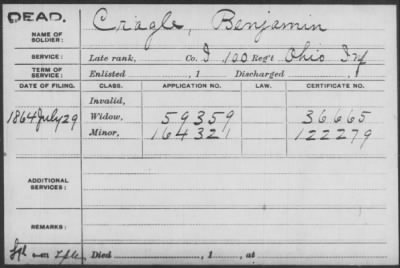 DEAD.
NAME OF SOLDIER: Cragle, Benjamin
SERVICE: Late rank, Co. I 100 Reg't Ohio Inf
TERM OF SERVICE: Enlisted , 1 Discharged , 1
DATE OF FILING. CLASS. APPLICATION NO. LAW. CERTIFICATE NO.
Invalid,
1864 July 29 Widow, 59359 36665
Minor, 164321 122279
ADDITIONAL SERVICES:
REMARKS:
Died , 1 , at